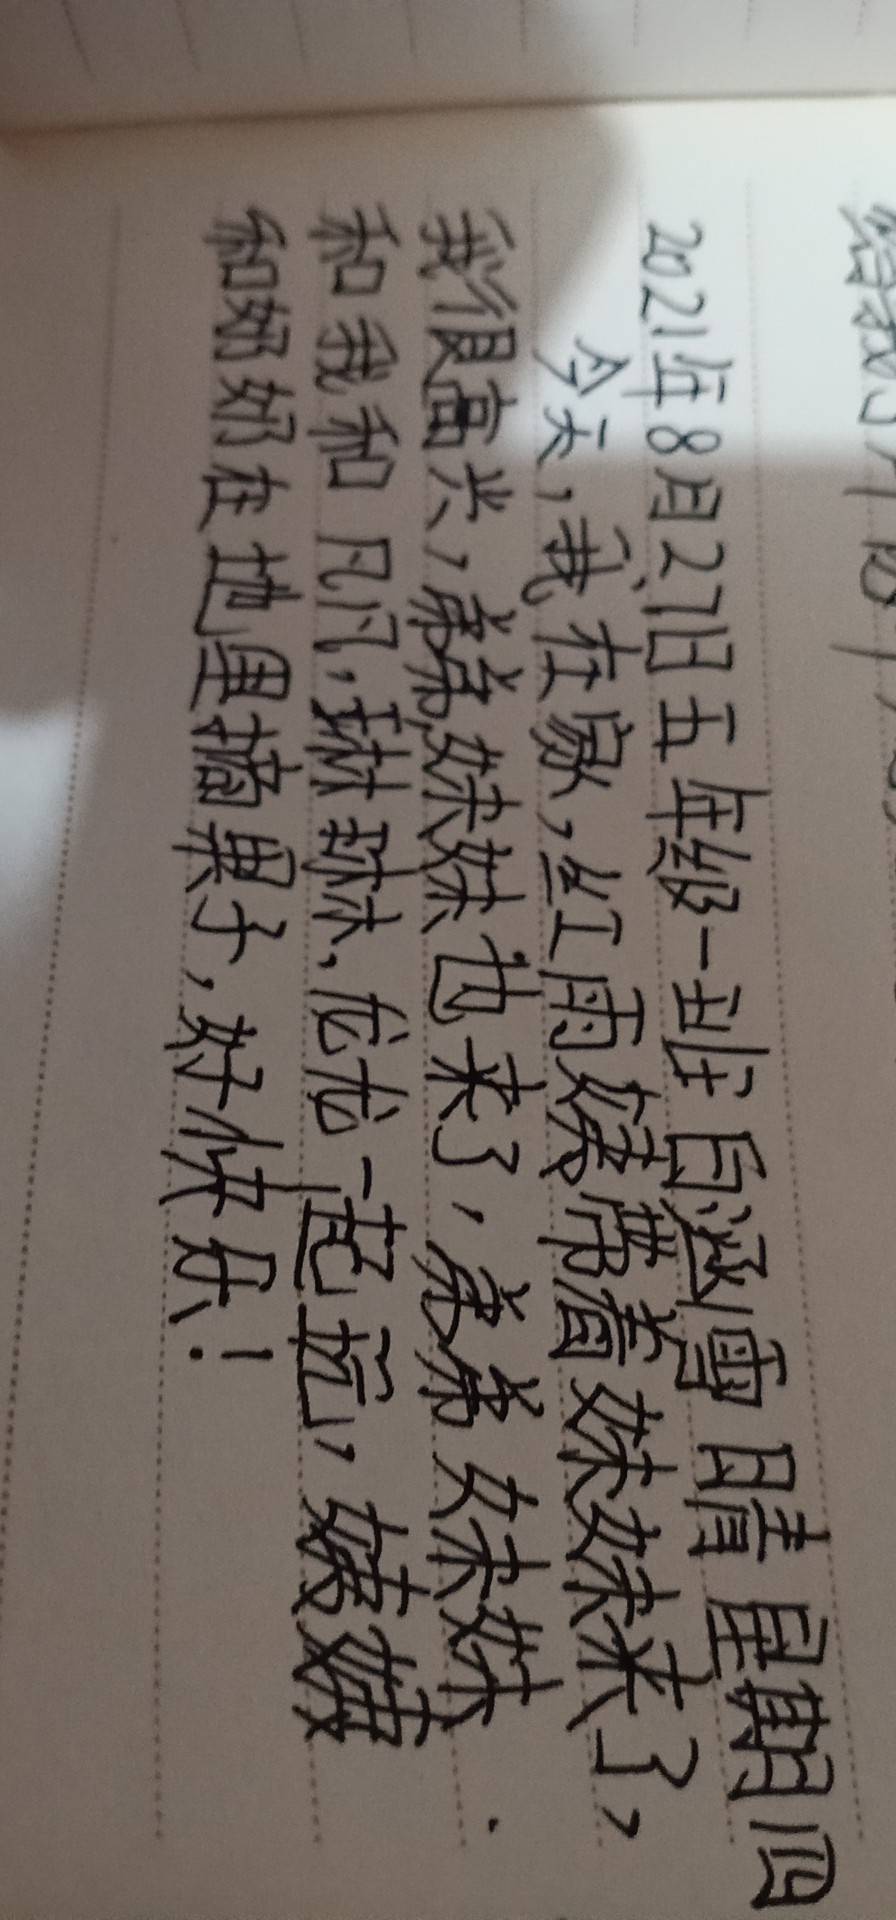 2021年8月27日五年级一班白涵雪 晴 星期四
今天,我在家,红雨姨带着妹妹来了,
我很高兴,弟弟,妹妹也来了,弟弟妹妹
和我和凡凡,琳琳,龙龙一起玩,姨姨
和奶奶在地里摘果子,好快乐!